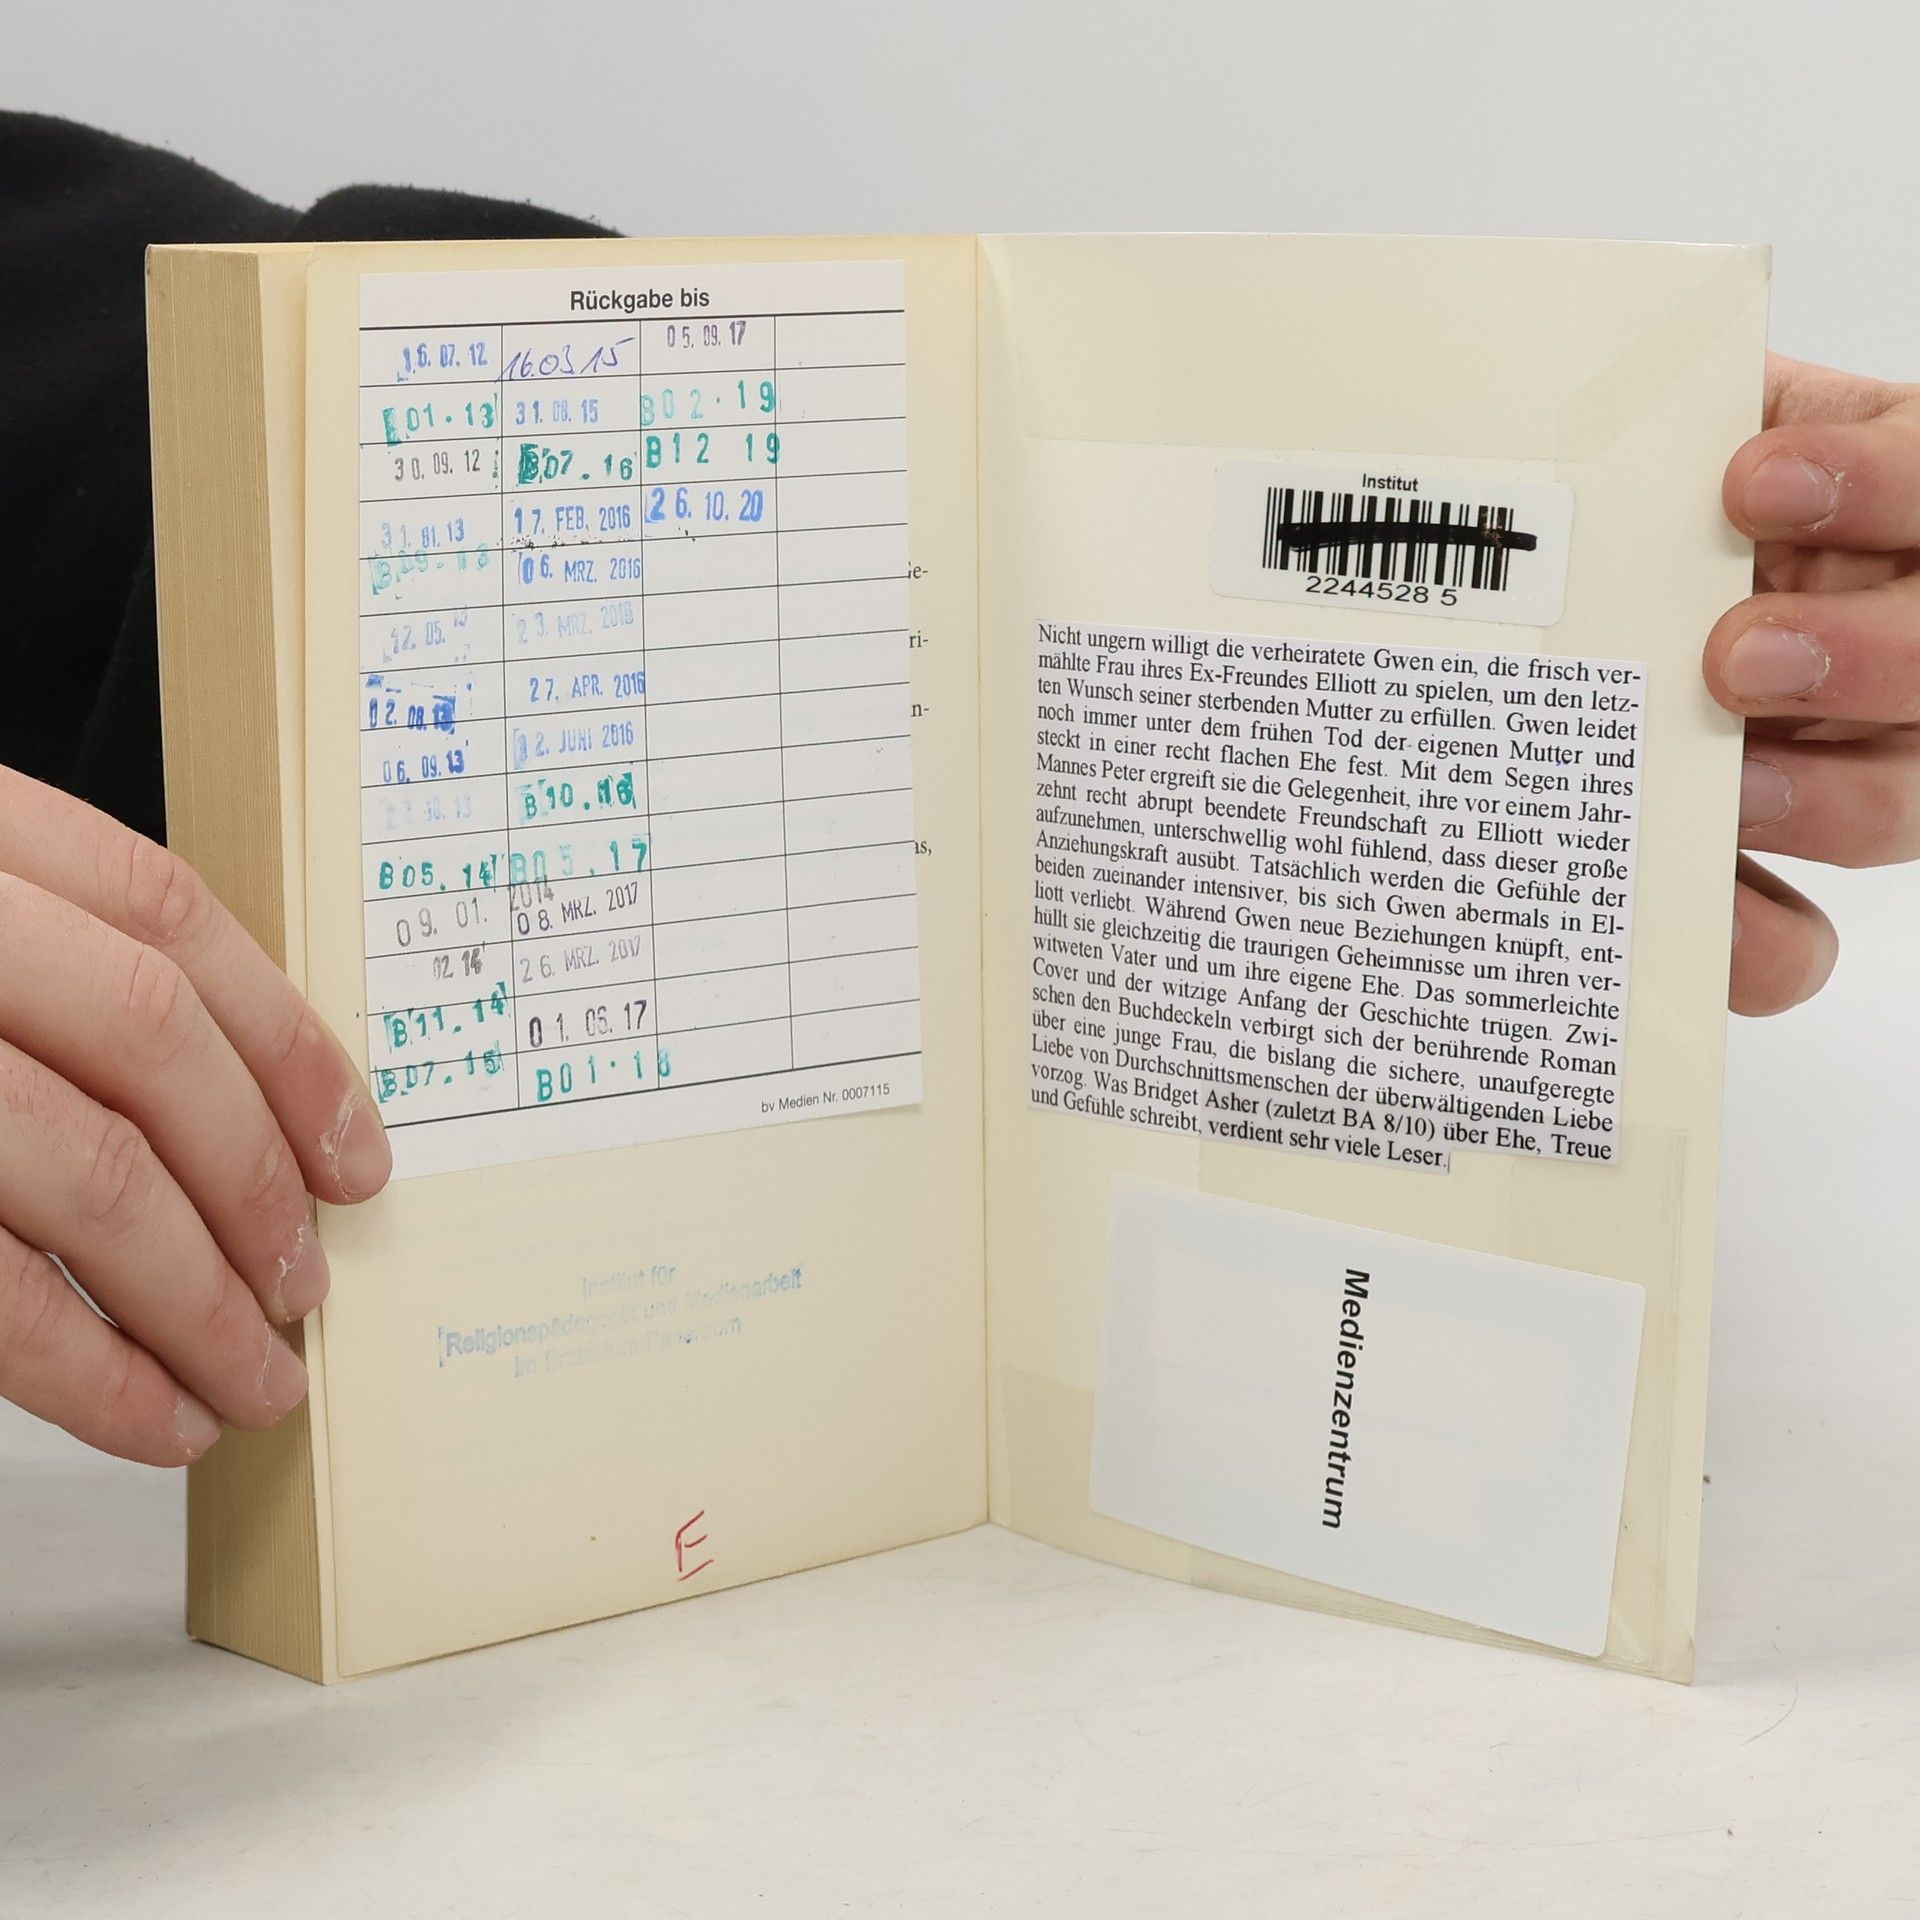 Rückgabe bis
16. 07. 12
01.13
30. 09. 12
31. 01. 13
B 09.13
12. 05. 13
02. 08. 13
06. 09. 13
10. 13
B 05. 14
09. 01. 2014
02 14
B 11. 14
B 07. 15
16.03.15
31. 08. 15
B 07. 16
17. FEB. 2016
06. MRZ. 2016
23. MRZ. 2016
27. APR. 2016
2. JUNI 2016
B 10. 16
B 05. 17
08. MRZ. 2017
26. MRZ. 2017
01. 06. 17
B 01.18
05. 09. 17
B 02.19
B 12 19
26. 10. 20
bv Medien Nr. 0007115
ri-
n-
as,
Institut für
Religionspädagogik und Medienarbeit
im Erzbistum Paderborn
E
Institut
2244528 5
Nicht ungern willigt die verheiratete Gwen ein, die frisch ver-
mählte Frau ihres Ex-Freundes Elliott zu spielen, um den letz-
ten Wunsch seiner sterbenden Mutter zu erfüllen. Gwen leidet
noch immer unter dem frühen Tod der eigenen Mutter und
steckt in einer recht flachen Ehe fest. Mit dem Segen ihres
Mannes Peter ergreift sie die Gelegenheit, ihre vor einem Jahr-
zehnt recht abrupt beendete Freundschaft zu Elliott wieder
aufzunehmen, unterschwellig wohl fühlend, dass dieser große
Anziehungskraft ausübt. Tatsächlich werden die Gefühle der
beiden zueinander intensiver, bis sich Gwen abermals in El-
liott verliebt. Während Gwen neue Beziehungen knüpft, ent-
hüllt sie gleichzeitig die traurigen Geheimnisse um ihren ver-
witweten Vater und um ihre eigene Ehe. Das sommerleichte
Cover und der witzige Anfang der Geschichte trügen. Zwi-
schen den Buchdeckeln verbirgt sich der berührende Roman
über eine junge Frau, die bislang die sichere, unaufgeregte
Liebe von Durchschnittsmenschen der überwältigenden Liebe
vorzog. Was Bridget Asher (zuletzt BA 8/10) über Ehe, Treue
und Gefühle schreibt, verdient sehr viele Leser.
Medienzentrum